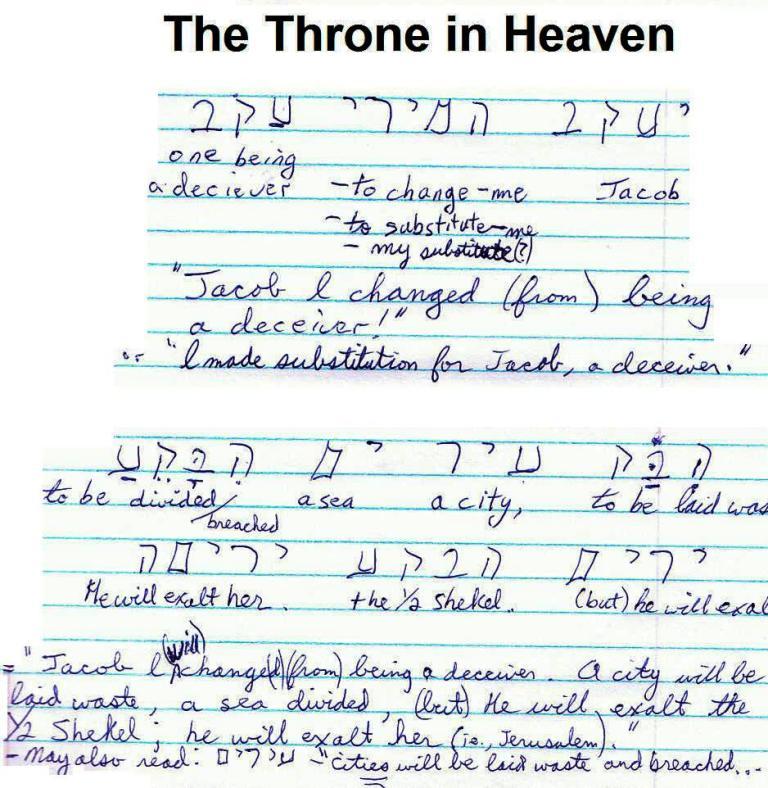 The Throne in Heaven
יעקב המירי עקב
one being
a deciever - to change - me Jacob
- to substitute - me
- my substitute(?)
"Jacob I changed (from) being
a deceiver!"
or "I made substitution for Jacob, a deceiver."
הבק עיר ים הבקע
to be divided/ a sea a city, to be laid was
breached
ירים הבקע ירימה
He will exalt her. the ½ Shekel.. (but) he will exal
(will)
= "Jacob I change(d) (from) being a deceiver. A city will be
laid waste, a sea divided, (but) He will exalt the
½ Shekel; he will exalt her (ie., Jerusalem)."
- May also read: עירים - "cities will be laid waste and breached...